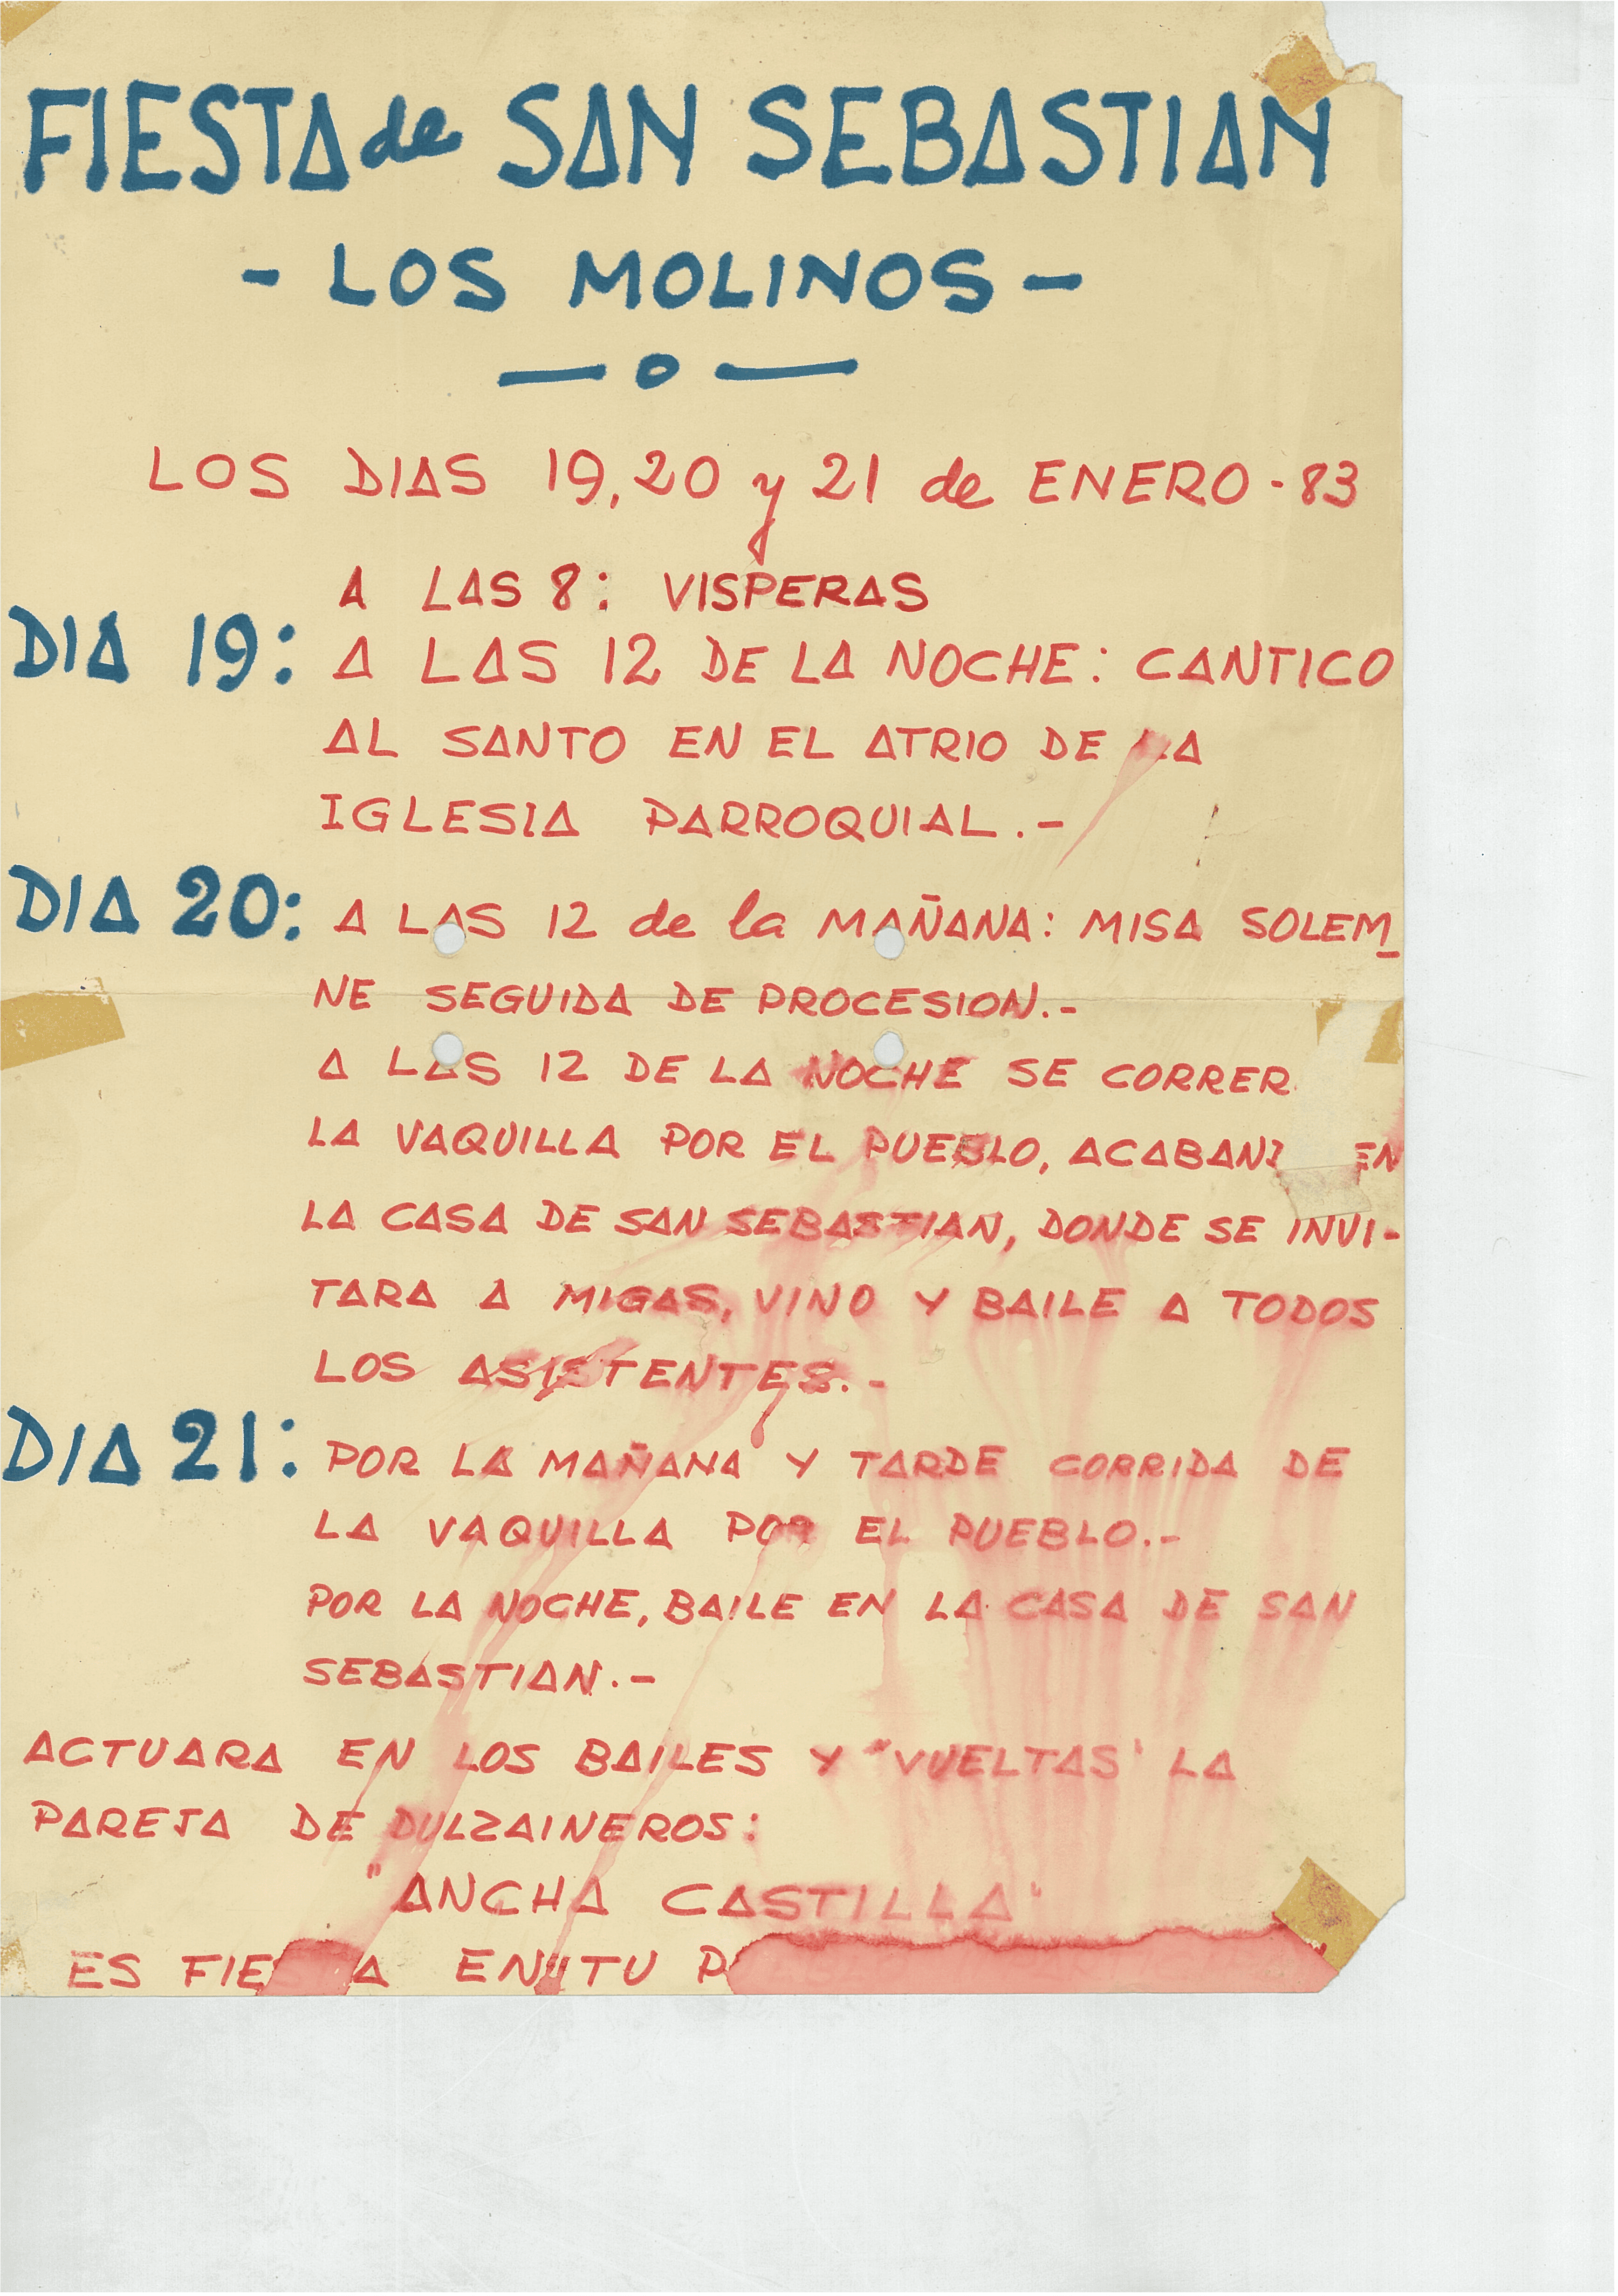 FIESTA de SAN SEBASTIAN
- LOS MOLINOS -
— o —
LOS DIAS 19, 20 y 21 de ENERO - 83
A LAS 8: VISPERAS
DIA 19: A LAS 12 DE LA NOCHE: CANTICO
AL SANTO EN EL ATRIO DE LA
IGLESIA PARROQUIAL.-
DIA 20: A LAS 12 de la MAÑANA: MISA SOLEM_
NE SEGUIDA DE PROCESION.-
A LAS 12 DE LA NOCHE SE CORRER
LA VAQUILLA POR EL PUEBLO, EN
LA CASA DE SAN SEBASTIAN, DONDE SE INVI-
TARA A MIGAS, VINO Y BAILE A TODOS
LOS ASISTENTES.-
DIA 21: POR LA MAÑANA Y TARDE CORRIDA DE
LA VAQUILLA POR EL PUEBLO.-
POR LA NOCHE, BAILE EN LA CASA DE SAN
SEBASTIAN.-
ACTUARA EN LOS BAILES Y "VUELTAS" LA
PAREJA DE DULZAINEROS:
"ANCHA CASTILLA"
ES FIESTA EN TU